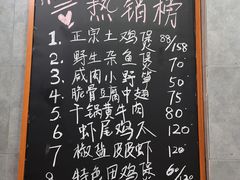 热销榜
1. 正宗土鸡煲 88/158
2. 野生杂鱼煲 70
3. 咸肉小野笋 50
4. 脆骨豆腐中翅 75
5. 干锅黄牛肉 80
6 虾尾鸡爪 120
7. 椒盐皮皮虾 120
8 特色甲鸡煲